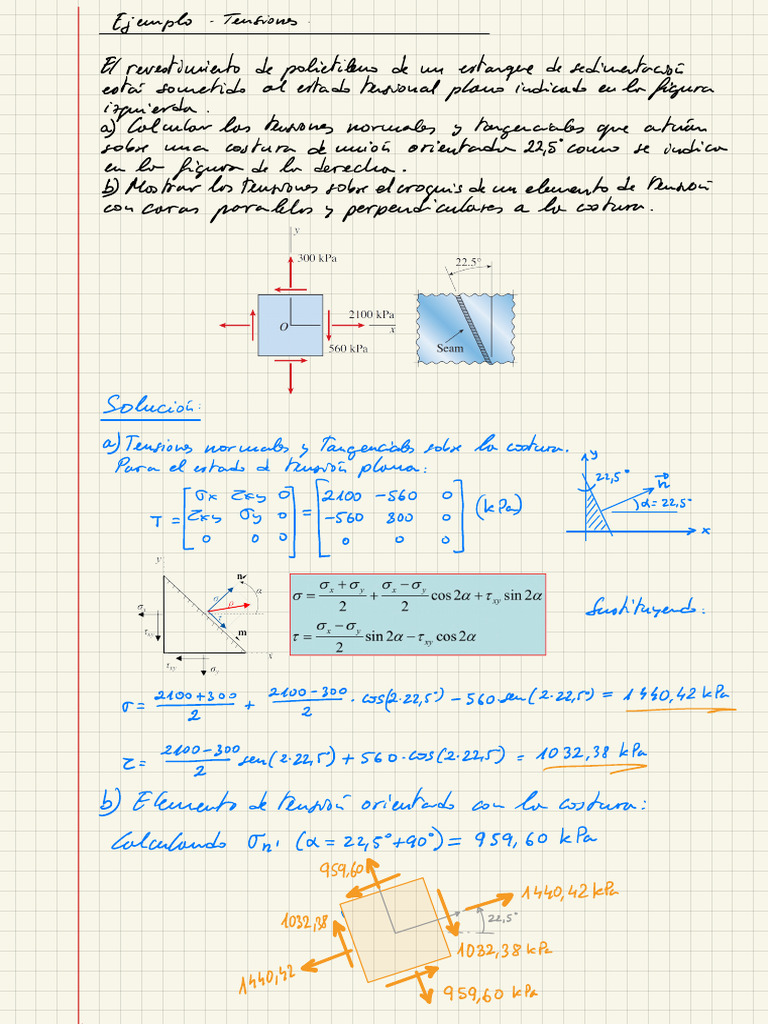 Ejemplo - Tensiones.
El revestimiento de polietileno de un estanque de sedimentación
está sometido al estado tensional plano indicado en la figura
izquierda.
a) Calcular las tensiones normales y tangenciales que actúan
sobre una costura de unión orientada 22,5° como se indica
en la figura de la derecha.
b) Mostrar las tensiones sobre el croquis de un elemento de tensión
con caras paralelas y perpendiculares a la costura.
y
300 kPa
2100 kPa
x
O
560 kPa
22.5°
Seam
Solución:
a) Tensiones normales y tangenciales sobre la costura.
Para el estado d tensión plana:
T = [σx τxy 0] = [2100 -560 0] (kPa)
[τxy σy 0] [-560 300 0]
[0 0 0] [0 0 0]
y
22,5°
n
α = 22,5°
x
y
n
α
σ
ρ
τ
m
σx
τxy
τxy
σy
x
σ = (σx + σy)/2 + (σx − σy)/2 cos 2α + τxy sin 2α
τ = (σx − σy)/2 sin 2α − τxy cos 2α
Sustituyendo:
σ = (2100+300)/2 + (2100-300)/2 · cos(2·22,5°) - 560·sen(2·22,5°) = 1440,42 kPa
τ = (2100-300)/2 sen(2·22,5°) + 560·cos(2·22,5) = 1032,38 kPa
b) Elemento de tensión orientado con la costura:
Calculando σn' (α = 22,5° + 90°) = 959,60 kPa
959,60
1440,42 kPa
22,5°
1032,38
1032,38 kPa
1440,42
959,60 kPa